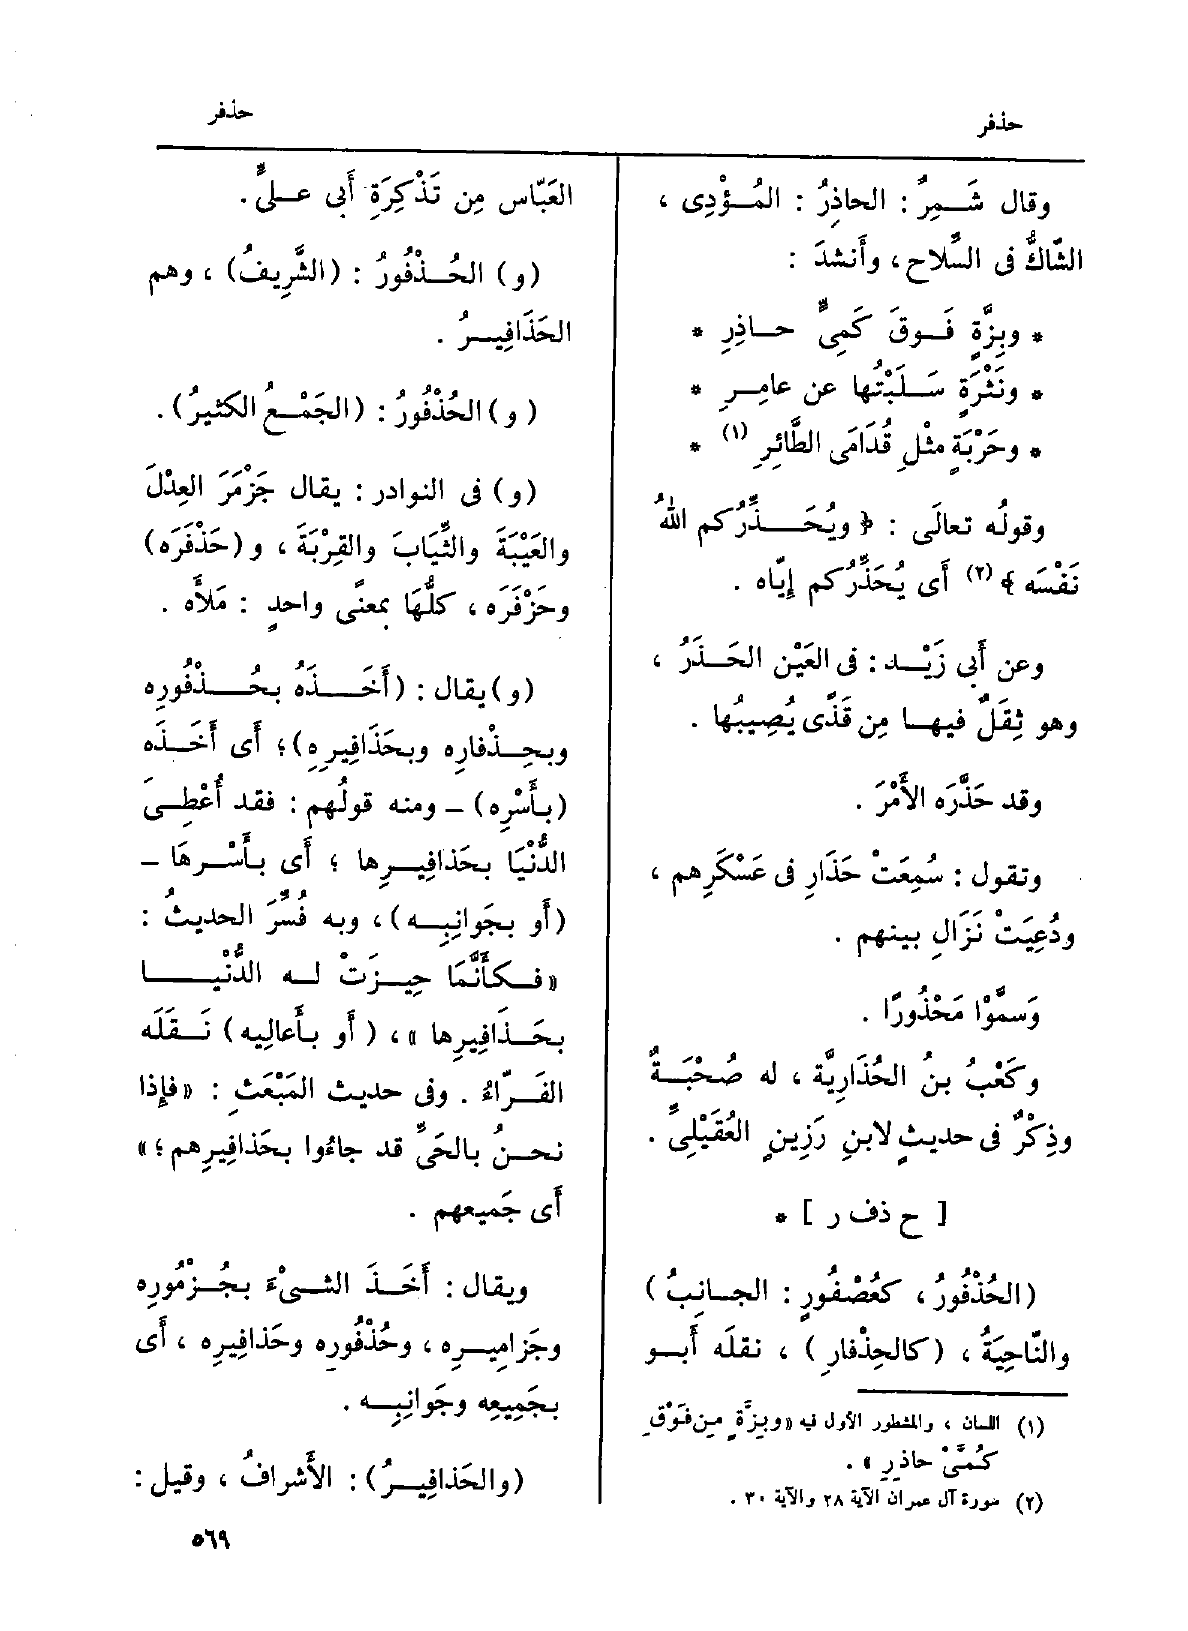 حذفر
حذفر
وقال شَمِرٌ : الحاذِرُ : المُؤْدِى ،
الشّاكُّ فى السِّلاح ، وأَنشدَ :
* وبِزَّةٍ فَوقَ كَمِىٍّ حاذِرِ *
* ونَثْرَةٍ سَلَبْتُها عن عامِرِ *
* وحَرْبَةٍ مثْلِ قُدَامَى الطَّائِرِ (١) *
وقولُه تعالَى : ﴿ ويُحَذِّرُكم اللهُ
نَفْسَه ﴾ (٢) أَى يُحَذِّرُكم إِيّاه .
وعن أَبى زَيْد : فى العَيْن الحَذَرُ ،
وهو ثِقَلٌ فيها مِن قَذًى يُصِيبُها .
وقد حَذَّرَه الأَمْرَ .
وتقول : سُمِعَتْ حَذَارِ فى عَسْكَرِهم ،
ودُعِيَتْ نَزَالِ بينهم .
وَسمَّوْا مَحْذُورًا .
وكَعْبُ بنُ الحُذَارِيَّة ، له صُحْبَةٌ
وذِكْرٌ فى حديثٍ لابنِ رَزِينٍ العُقَيْلِىِّ .
[ ح ذف ر ] *
(الحُذْفُورُ ، كعُصْفُورٍ : الجانِبُ )
والنّاحِيَةُ ، (كالحِذْفارِ ) ، نقلَه أَبو
(١) اللسان ، والمشطور الأول فيه «وبِزَّةٍ مِن فَوْقِ
كَمِىٍّ حاذِرِ » .
(٢) سورة آل عمران الآية ٢٨ والآية ٣٠ .
العَبّاس مِن تَذْكِرَةِ أَبى علىٍّ .
(و) الحُذْفُورُ : (الشَّرِيفُ) ، وهم
الحَذَافِيرُ .
(و) الحُذْفُورُ : (الجَمْعُ الكَثيرُ) .
(و) فى النوادر : يقال جَزْمَرَ العِدْلَ
والعَيْبَةَ والثِّيَابَ والقِرْبَةَ ، و (حَذْفَرَه)
وحَزْفَرَه ، كلُّهَا بمعنًى واحدٍ : مَلأَه .
(و) يقال : (أَخَذَهُ بحُذْفُورِه
وبحِذْفارِه وبحَذَافِيرِهِ) ؛ أَى أَخَذَه
(بأَسْرِه) ــ ومنه قولُهم : فقد أُعْطِىَ
الدُّنْيَا بحَذافِيرِها ؛ أَى بأَسْرِهَا ــ
(أَو بجَوانِبِه) ، وبه فُسِّرَ الحديثُ :
«فكأَنَّمَا حِيزَتْ له الدُّنْيا
بحَذَافِيرِها » ، (أَو بأَعالِيه) نَقَلَه
الفَرّاءُ . وفى حديث المَبْعَثِ : «فإِذا
نحنُ بالحَىِّ قد جاءُوا بحَذافِيرِهم ؛»
أَى جَميعهم .
ويقال : أَخَذَ الشىْءَ بجُزْمُورِه
وجَزامِيرِه ، وحُذْفُوره وحَذافِيرِه ، أَى
بجَمِيعِه وجَوانِبِه .
(والحَذافِيرُ) : الأَشرافُ ، وقيل :
٥٦٩